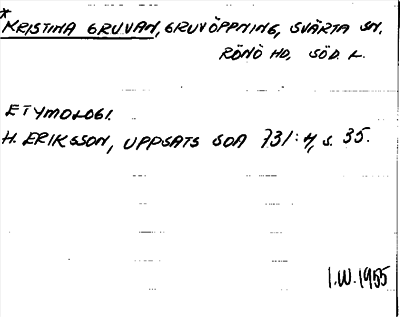 *
KRISTINA GRUVAN, GRUVÖPPNING, SVÄRTA SN,
RÖNÖ HD, SÖD. L.
ETYMOLOGI.
H. ERIKSSON, UPPSATS SOA 731:4, s. 35.
I.W. 1955